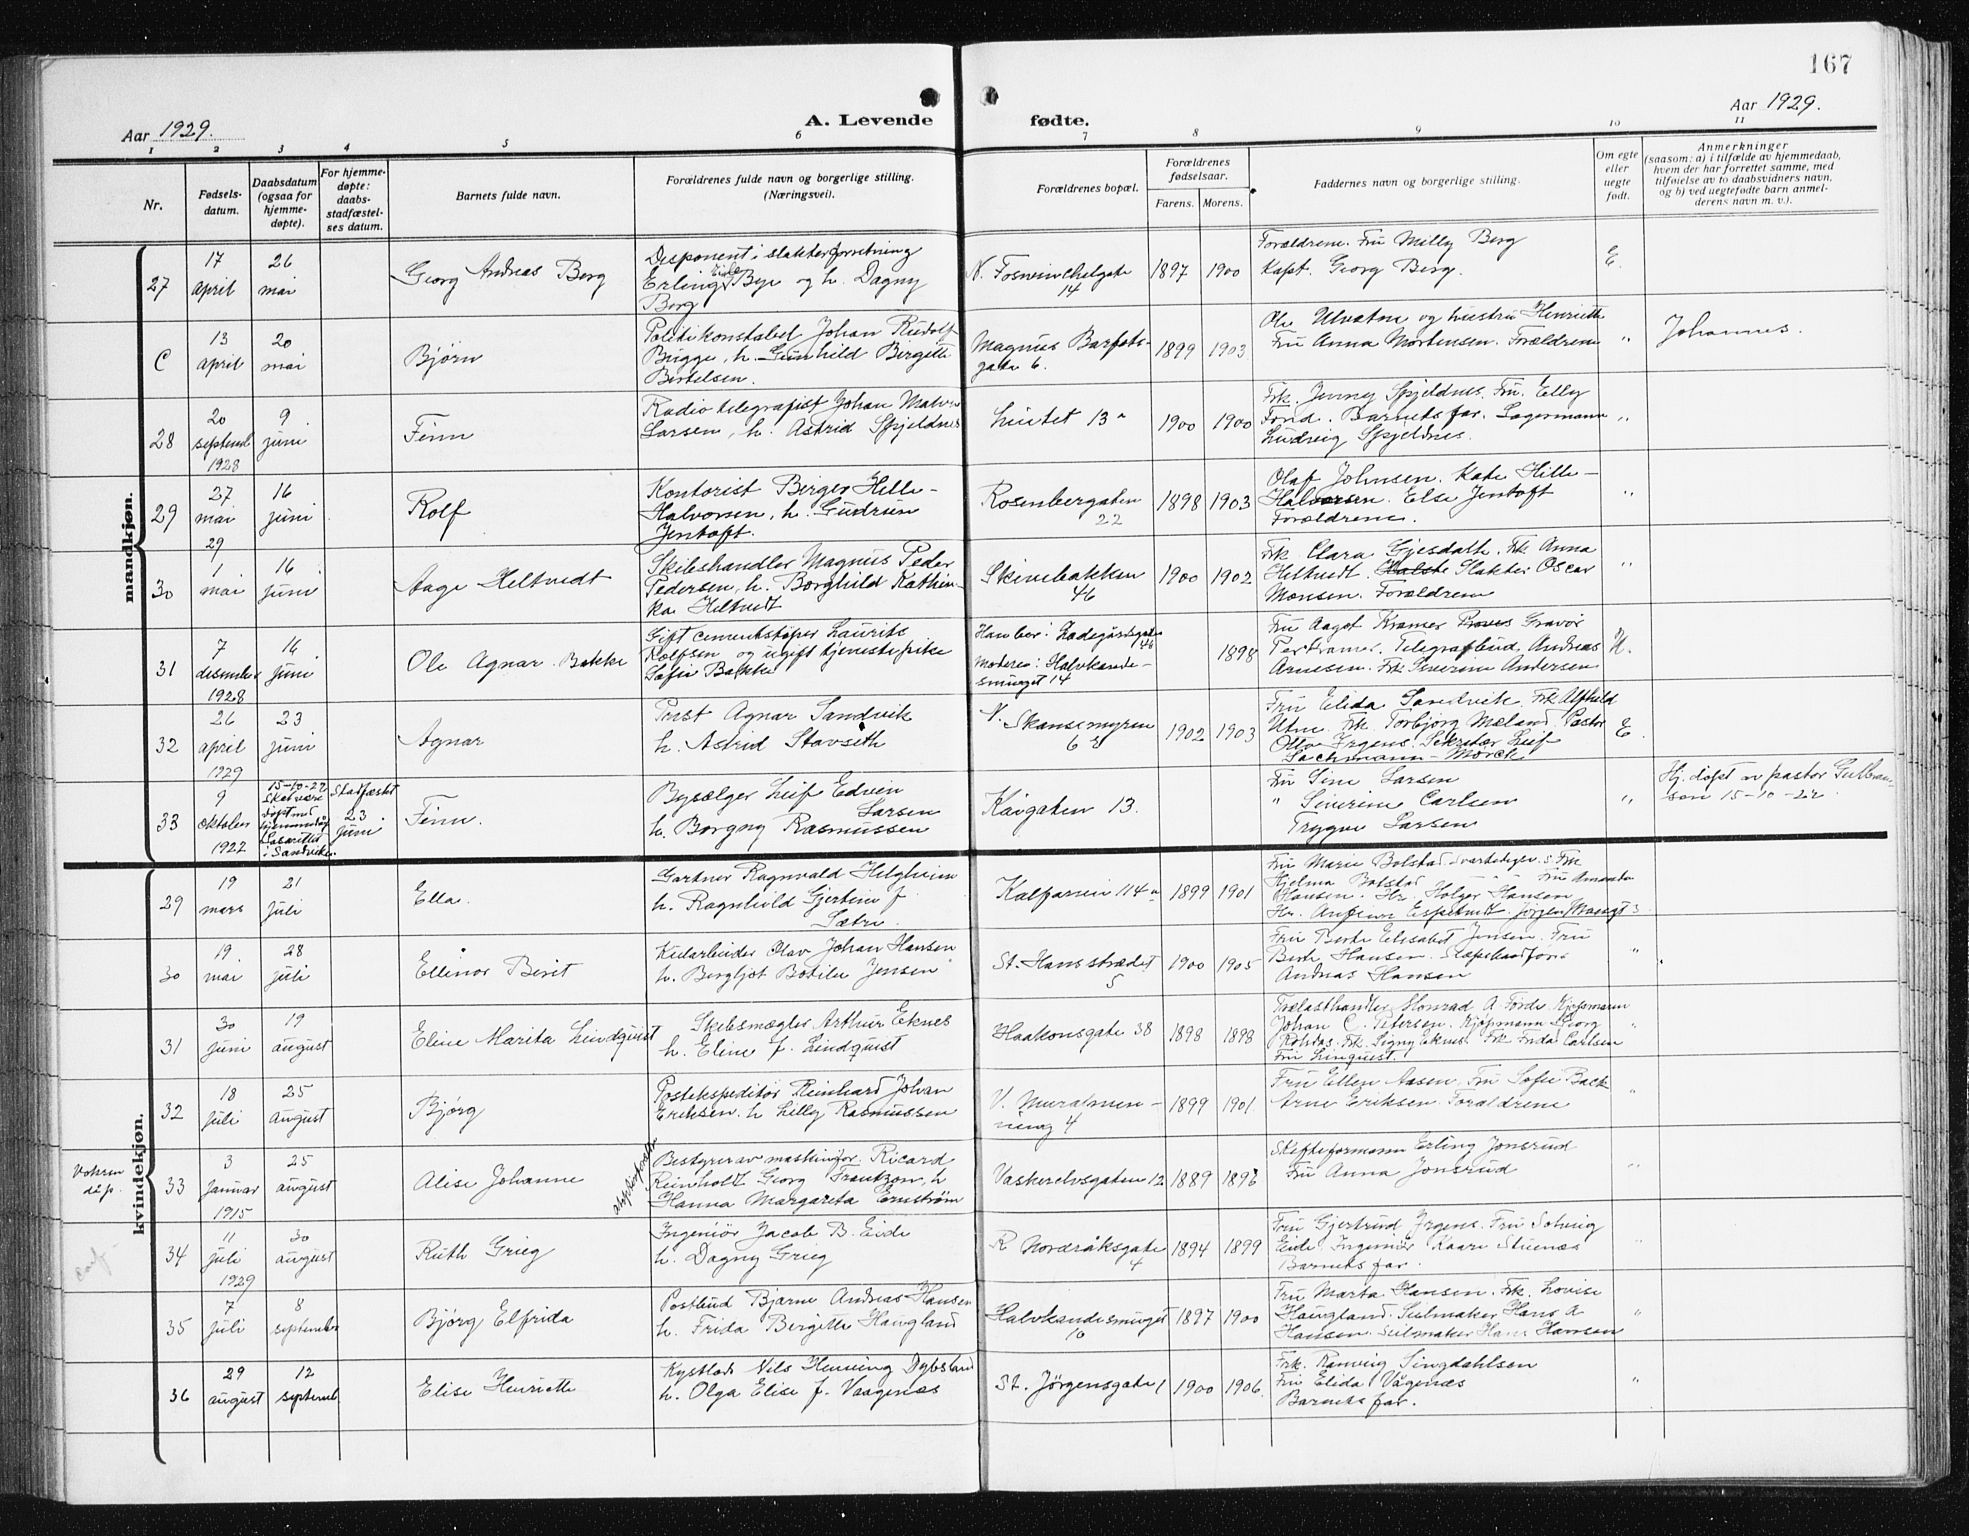 167
Aar 1929.
A. Levende
fødte.
Aar 1929.
1 2 3 4 5 6 7 8 9 10 11
Nr.
Fødsels-
datum.
Daabsdatum
(ogsaa for
hjemme-
døpte).
For hjemme-
døpte:
daabs-
stadfæstel-
ses datum.
Barnets fulde navn.
Forældrenes fulde navn og borgerlige stilling.
(Næringsvei).
Forældrenes bopæl.
Forældrenes
fødselsaar.
Farens. Morens.
Faddernes navn og borgerlige stilling.
Om egte
eller
uegte
født.
Anmerkninger
(saasom: a) i tilfælde av hjemmedaab,
hvem der har forrettet samme, med
tilføielse av to daabsvidners navn,
og b) ved uegtefødte barn anmel-
derens navn m. v.).
mandkjøn.
27
17
april
26
mai
Georg Andreas Berg
Disponent i slakterforretning
Erling Eide Bye og h. Dagny
Berg
14
1897 1900
Forældrene. Fru Milly Berg
Kapt. Georg Berg.
E.
C
13
april
20
mai
Bjørn
Politikonstabel Johan Rudolf
Brigge, h. Gunhild Bergitte
Bertelsen.
Magnus Barfots-
gate 6.
1899 1903
Ole Ulvatn og hustru Henriette
Fru Anna Mortensen. Forældrene
"
Johannes.
28
20
septemb
1928
9
juni
Finn
Radiotelegrafist Johan
Larsen, h. Astrid Spjeldnes
13a
1900 1900
Frk. Jenny Spjeldnes. Fru. Elly
Fond. Barnets far. Lagermann
Ludvig Spjeldnes.
"
29
27
mai
29
16
juni
Rolf
Kontorist Birger Hille-
Halvorsen, h. Gudrun
Jentoft.
Rosenbergaten
22
1898 1903
Olaf Johnsen. Kate Hille-
Halvorsen. Else Jentoft
Forældrene.
"
30
1
mai
16
juni
Aage Heltvedt
Skibshandler Magnus Peder
Pedersen, h. Borghild Kathin-
ka Heltvedt
Skivebakken
46
1900 1902
Frk. Clara Gjesdahl. Frk Anna
Heltvedt. Slakter Oscar
Monsen. Forældrene
"
31
7
desember
1928
16
juni
Ole Agnar Bakke
Gift cementstøper Laurits
Rolfsen og ugift tjenestepike
Sofie Bakke
Han bor: Ladegårdsgate
46
Moderen: Halvkande-
smuget 14
1898
Fru Aagot Kramer Gravør
Per Kramer. Telegrafbud Andreas
Arnesen. Frk Severine Andersen
U.
32
26
april
1929
23
juni
Agnar
Prest Agnar Sandvik
h. Astrid Stavseth
V. Skansemyren
6
1902 1903
Fru Elida Sandvik. Frk Alfhild
Utne. Frk. Torbjørg Mæland. Pastor
Otto Irgens. Sekretær Leif
Lachmann-Mørck
E.
33
9
oktober
1922
15-10-22
i Sandviken
Stadfæstet
23.
juni
Finn.
Bysælger Leif Edvin
Larsen
h. Borgny Rasmussen
Kaigaten 13.
Fru Sine Larsen
" Severine Carlsen
Trygve Larsen
"
Hj. døpt av pastor Gulbran-
sen 15-10-22.
kvindekjøn.
29
19
mars
21
juli
Ella.
Gartner Ragnvald Helgheim
h. Ragnhild Gjertine f
Sætre.
Kalfarvein 114a
1899 1901
Fru Marie Bolstad. Frk
Hjelma Bolstad Fru Amanda
Hansen. Hr. Holger Hansen
30
19
mai
28
juli
Ellinor Berit
Kularbeider Olav Johan Hansen
h. Bergljot Botilie Jensen
St. Hansstrædet
5
1900 1905
Fru Berte Elisabet Jensen. Fru
Berth Hansen.
Andreas Hansen
"
31
30
juni
19
august
Eline Marita Lindquist
Skibsmægler Arthur Eknes
h. Eline f. Lindquist
Haakonsgate 38
1898 1898
Trælasthandler Monrad A Førde. Kjøpmann
Johan C. Petersen. Kjøpmann Georg
Rohdas. Frk. Signy Eknes. Frk Frida Carlsen
Fru Linquist.
"
32
18
juli
25
august
Bjørg
Postekspeditør Reinhard Johan
Eriksen. h Lilly Rasmussen
V. Muralmen-
ning 4
1899 1901
Fru Ellen Aasen. Fru Sofie Back
Arne Eriksen. Forældrene
"
Voksen
dåp.
33
3
januar
1915
25
august
Alise Johanne
adoptivforældre
Bestyrer av maskinfor. Ricard
Reinholt Georg Frantzon, h
Hanna Margareta Ernstrøm
Vaskerelvsgaten 12
1889 1896
Skifteformann Erling Jonsrud
Fru Anna Jonsrud
"
34
11
juli
1929
30
august
Ruth Grieg
Ingeniør Jacob B. Eide
h. Dagny Grieg
R Nordråksgate
4
1894 1899
Fru Gjertrud Irgens. Fru Solveig
Eide. Ingeniør Kaare Stuenæs
Barnets far.
"
35
7
juli
8
september
Bjørg Elfrida
Postbud Bjarne Andreas Hansen
h. Frida Bergitte Haugland
Halvkandesmuget
10
1897 1900
Fru Marta Hansen. Frk. Lovise
Haugland. Seilmaker Hans A
Hansen. Seilmaker Hans Hansen
"
36
29
august
12
septemb.
Elise Henriette
Kystlods Nils Henning Dybsland
h. Olga Elise f. Vaagenæs
St. Jørgensgate 1
1900 1906.
Frk. Ranveig Singdahlsen
Fru Elida Vågenæs
Barnets far.
"